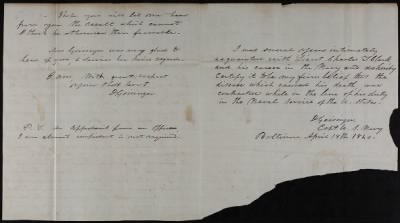 When you will let me hear
from you the result which cannot
I think be otherwise than favorable.
Mrs Geisinger was very glad to
hear of you & desires her kind regards.
I am, With great respect
your obdt Servt
D Geisinger
P. S. An Affidavit from an Officer
I am almost confident is not required
I was several years intimately
acquainted with Lieut Charles T. Clark
and his career in the Navy and as hereby
Certify it to be my firm belief that the
disease which caused his death was
contracted while in the line of his duty
in the Naval Service of the U. States.
D Geisinger
Capt U. S. Navy
Baltimore April 18th 184